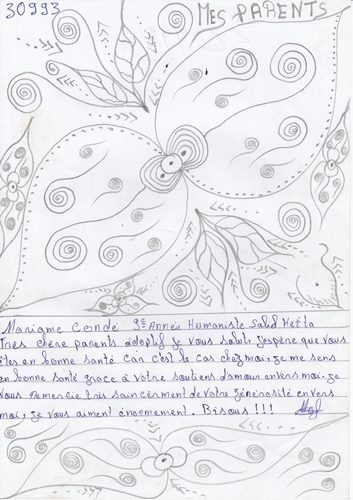 30993
MES PARENTS
Mariame Condé 3e Année Humaniste Salid Hetta
très chère parents adoptif je vous salut, j'espère que vous
êtes en bonne santé car c'est le cas chez moi, je me sens
en bonne santé grace à vôtre soutiens d'amour envers moi, je
vous remercie très saincerment de votre générosité envers
moi, je vous aiment énormement. Bisous !!!